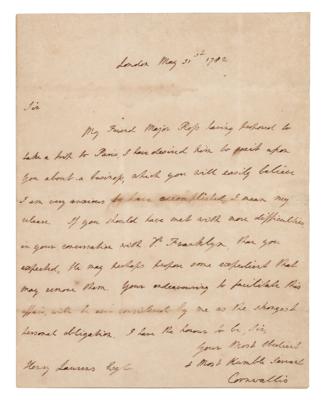 London May 31st 1782
Sir
My Friend Major Ross having proposed to
take a trip to Paris, I have desired him to wait upon
You about a business, which you will easily believe
I am very anxious to have accomplished, I mean my
release. If you should have met with more difficulties
in your conversation with Dr Franklyn, than you
expected, He may perhaps propose some expedient that
may remove them. Your endeavouring to facilitate this
affair, will be ever considered by me as the strongest
personal obligation. I have the honour to be, Sir,
Your Most Obedient
& Most Humble Servant
Henry Laurens Esqr. Cornwallis